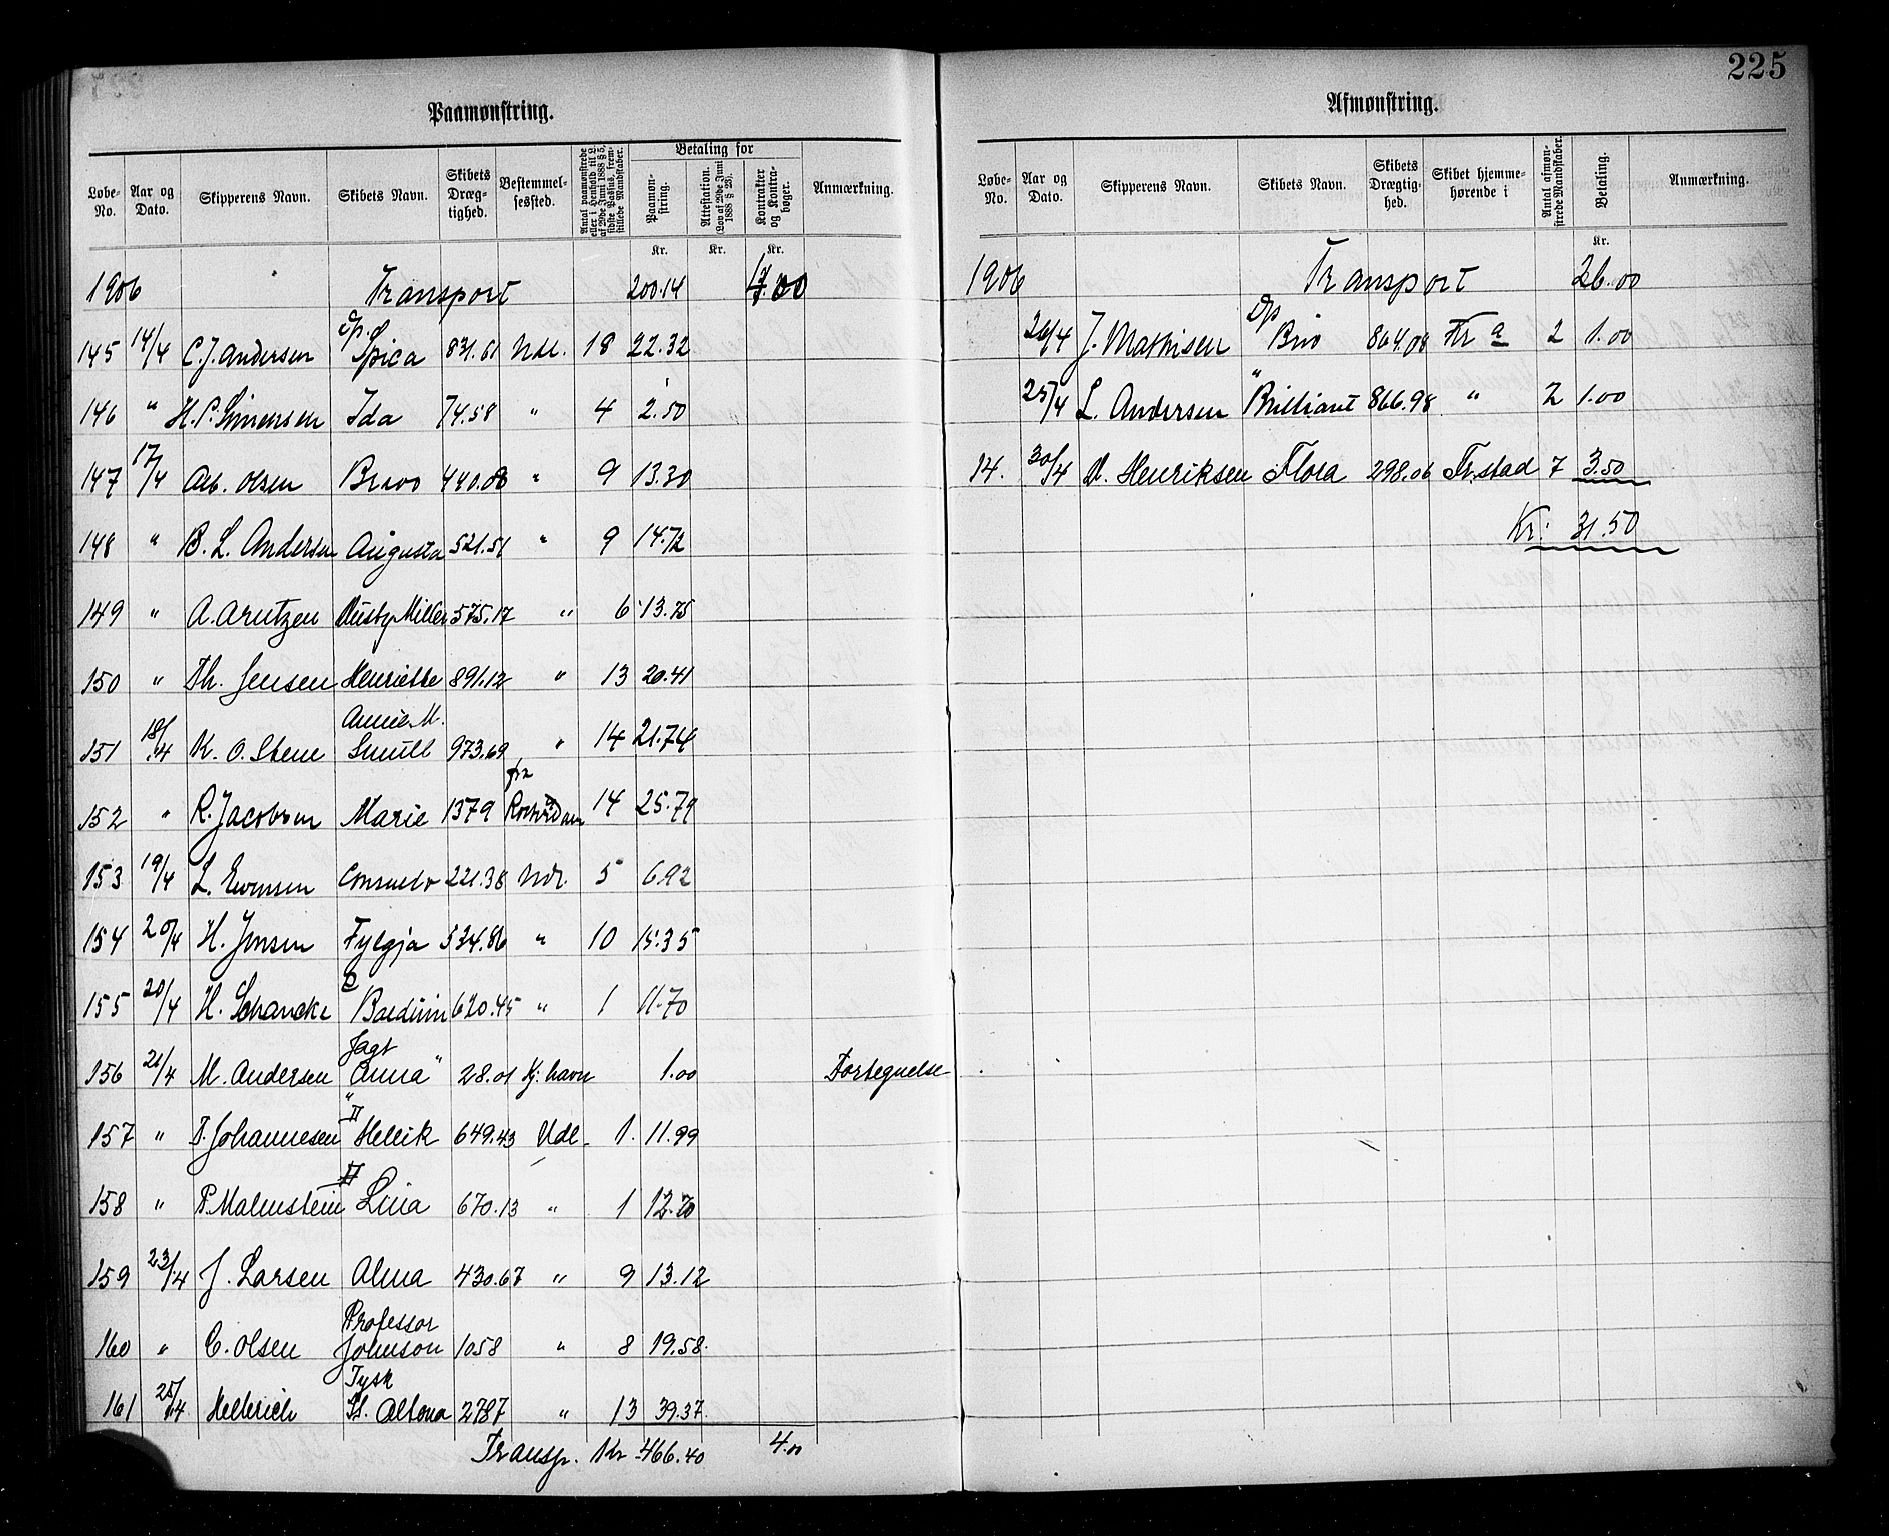 225
Paamønstring.
Løbe-No. | Aar og Dato. | Skipperens Navn. | Skibets Navn. | Skibets Dræg-tighed. | Bestemmel-sessted. | Antal paamønstrede eller i Henhold til L. af 29de Juni 1888 § 5, sidste Passus, frem-stillede Mandskaber. | Betaling for | Paamøn-string. | Attestation. (Lov af 29de Juni 1888 § 23). | Kontrakter og Kontra-bøger. | Anmærkning.
Kr. Kr. Kr.
1906 Transport 200.14 4.00
145 14/4 C.J. Andersen Dp. Spica 831.61 Udl. 18 22.32
146 " H.P. Simensen Ida 74.58 " 4 2.50
147 17/4 Olsen Bravo 440.08 " 9 13.30
148 " B. L. Andersen Augusta 521.51 " 9 14.72
149 " A. Arntzen Miller 575.17 " 6 13.75
150 " Th. Jensen Henriette 891.12 " 13 20.41
151 18/4 K. O. Stene Annie M. Smull 973.69 " 14 21.74
152 " R. Jacobsen Marie 1379 fra Rotterdam 14 25.79
153 19/4 L. Evensen Consuelo 221.38 Udl. 5 6.92
154 20/4 H. Jensen Fylgja 534.86 " 10 15.35
155 20/4 H. Schancke Balduin 620.45 " 1 11.70
156 21/4 M. Andersen Jagt "Anna" 28.01 Kj. havn 1.00 Fortegnelse
157 " T. Johannesen Hellik 649.43 Udl. 1. 11.99
158 " P. Malmstein Lina 670.13 " 1 12.20
159 23/4 J. Larsen Alma 430.67 " 9 13.12
160 " C. Olsen Professor Johnson 1058 " 8 19.58.
161 25/4 Tysk St. Altona 2787 " 13 39.37.
Transp. Kr 466.40 4.00
Afmønstring.
Løbe-No. | Aar og Dato. | Skipperens Navn. | Skibets Navn. | Skibets Drægtig-hed. | Skibet hjemme-hørende i | Antal afmøn-strede Mandskaber. | Betaling. | Anmærkning.
Kr.
1906 Transport 26.00
26/4 J. Mathisen Dp Brio 864.08 Kr a 2 1.00
25/4 L. Andersen " Brilliant 866.98 " 2 1.00
14. 30/4 Henriksen Flora 298.06 Fr.stad 7 3.50
Kr. 31.50